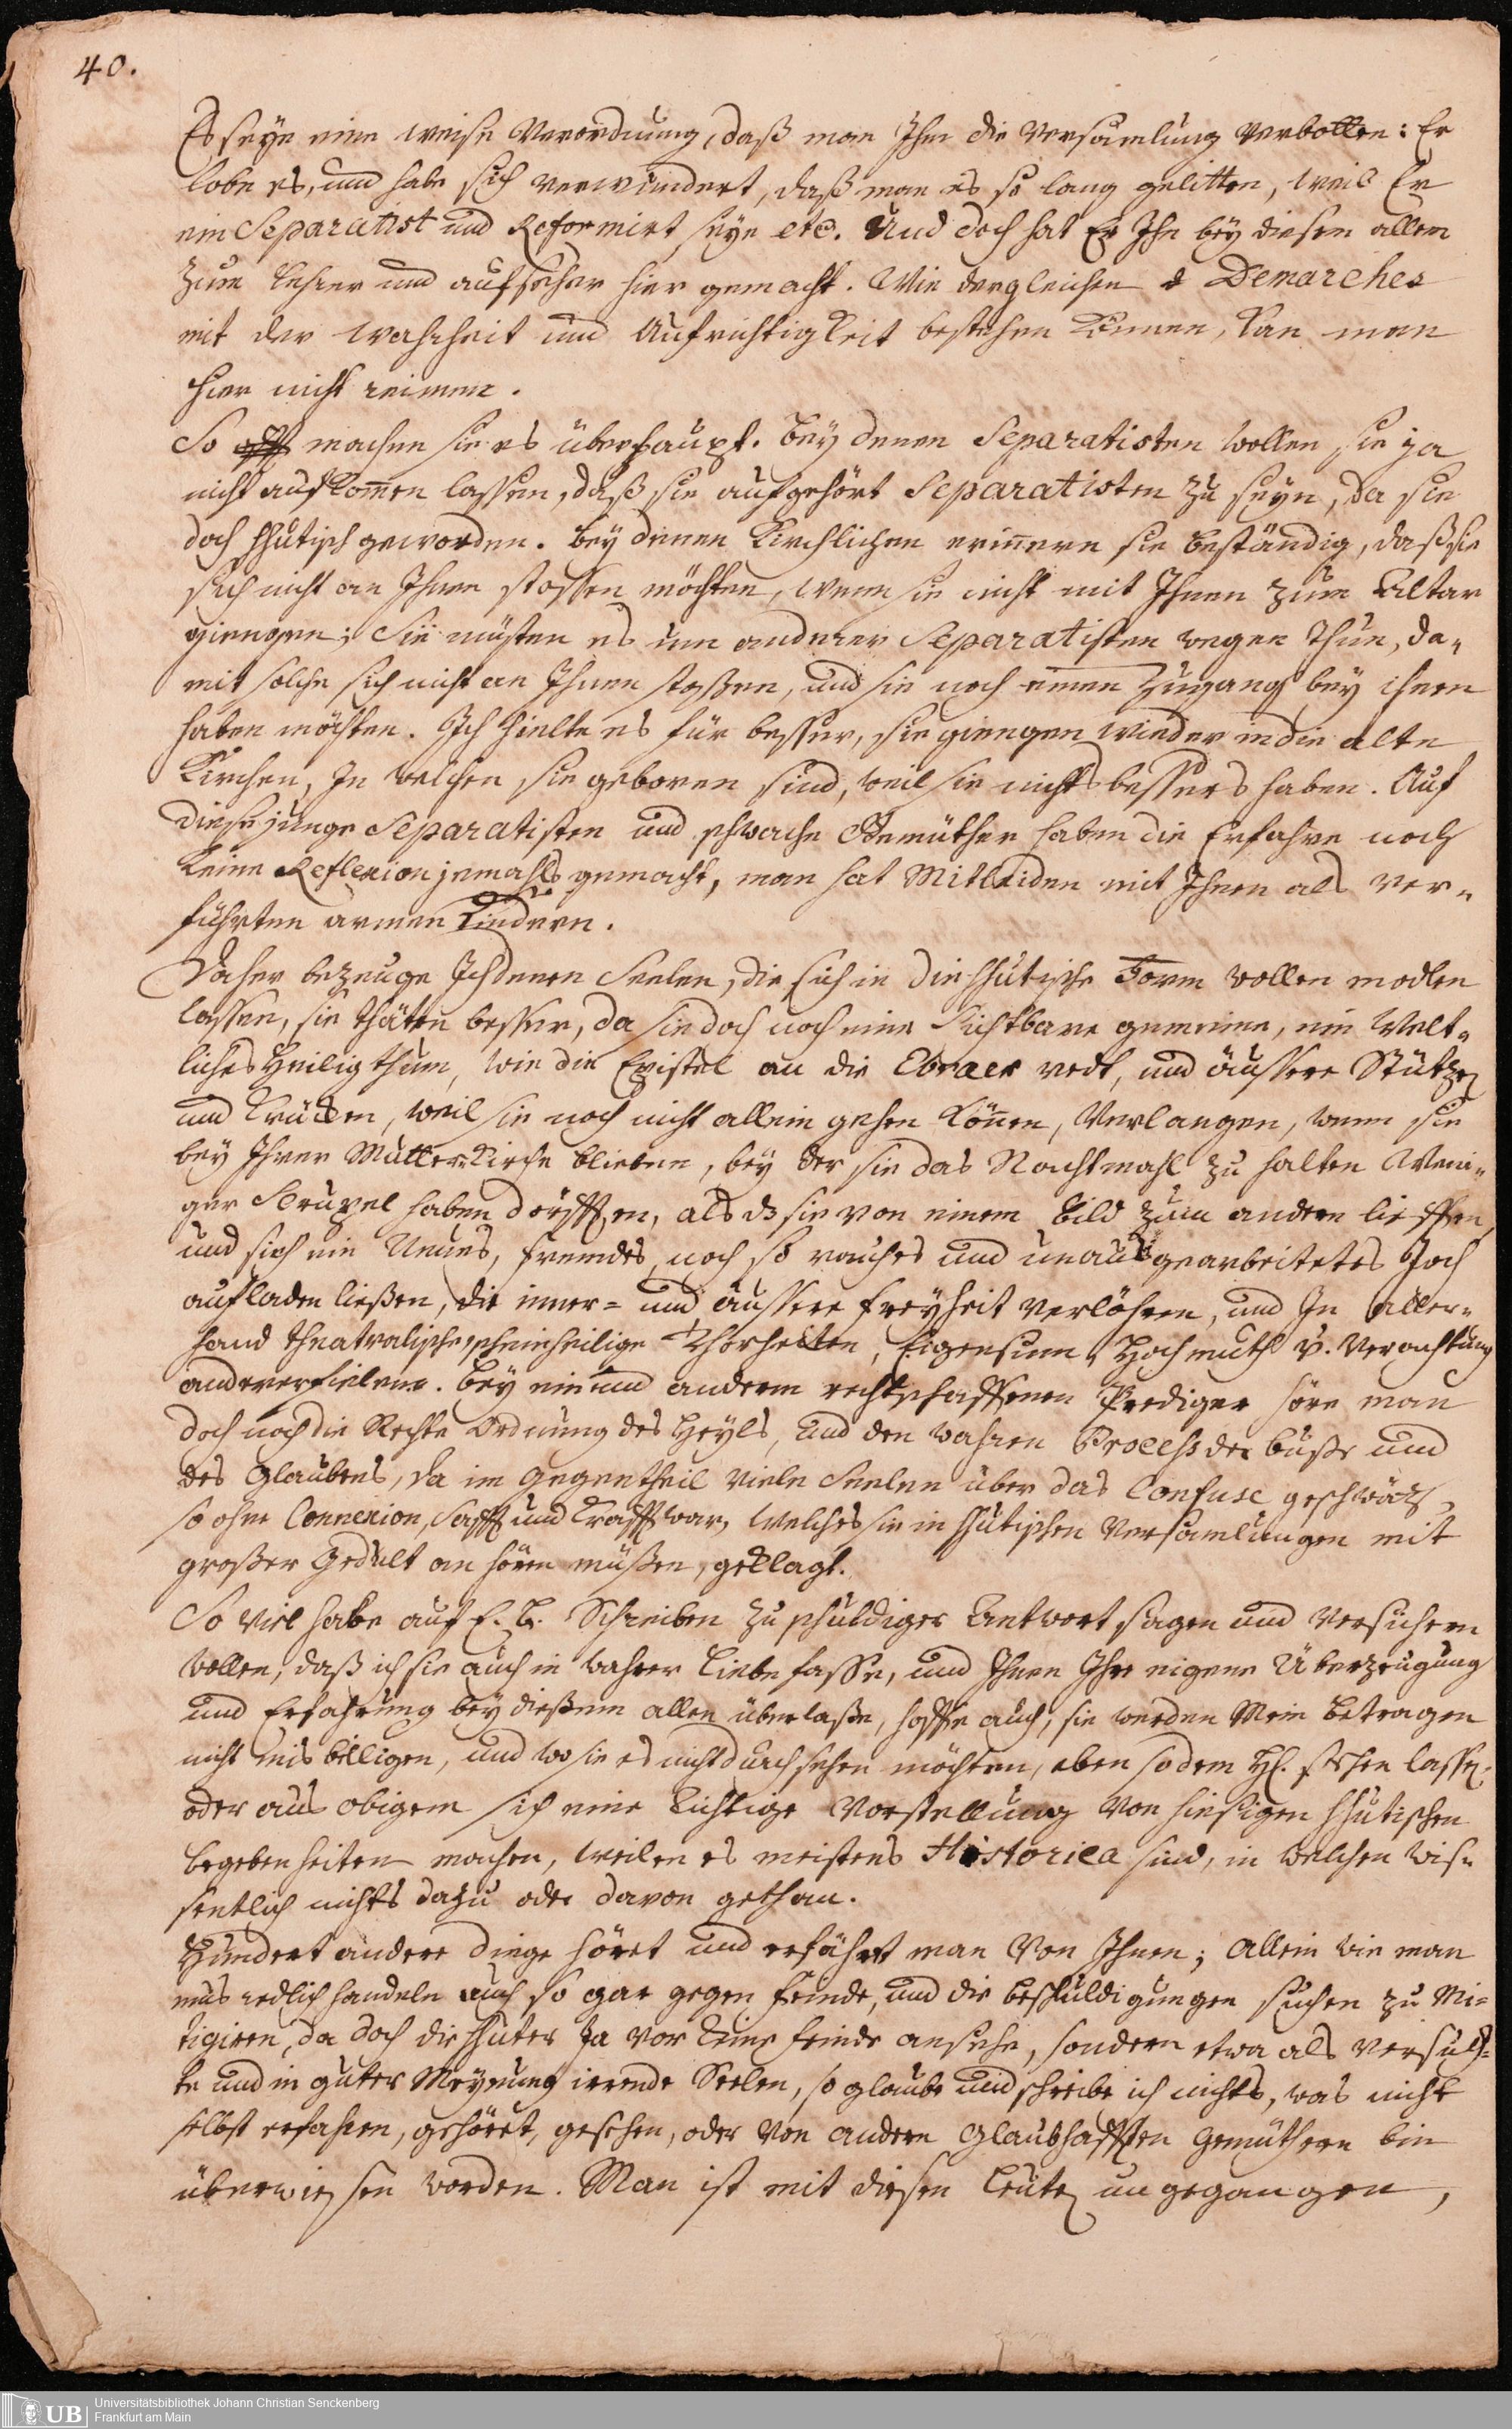 40.
Es seye eine weise Verordnung, daß man Ihm die Versamlung Verbotten: Er
lobe es, und habe sich verwundert, daß man es so lang gelitten, weil Er
ein Separatist und Reformirt seye etc. Und doch hat Er Ihn bey diesem allem
zum Lehrer und aufseher hier gemacht. Wie dergleichen Demarches
mit der Wahrheit und Aufrichtigkeit bestehen können, kan man
hier nicht reimen.
So machen sie es überhaupt. Bey denen Separatisten wollen sie ja
nicht aufkom̄en lassen, daß sie aufgehört Separatisten zu seyn, da sie
doch hhutisch geworden. Bey denen Kirchlichen erin̄ern sie beständig, daß sie
sich nicht an Ihnen stossen möchten, wenn sie nicht mit Ihnen zum Altar
giengen; Sie müsten es um anderer Separatisten wegen thun, da-
mit solche sich nicht an Ihnen stoßen, und sie noch einen Zugang bey ihnen
haben möchten. Ich hielte es für besser, sie giengen wieder in die alte
Kirchen, In welchen sie geboren sind, weil sie nichts bessers haben. Auf
diese junge Separatisten und schwache Gemüther haben die Erfahrne noch
keine Reflexion jemahls gemacht, man hat Mitleiden mit Ihnen als ver-
führten armen Kindern.
Daher bezeuge Ich denen Seelen, die sich in die hhutische Form wollen modlen
lassen, sie thäten besser, da sie doch noch eine Sichtbare gemeine, ein Welt-
liches Heiligthum, wie die Epistel an die Ebraer redt, und äussere Stützen
und Krücken, weil sie noch nicht allein gehen kön̄en, Verlangen, wenn sie
bey Ihrer Mutter Kirche blieben, bey der sie das Nachtmahl zu halten Weni-
ger Scrupel haben dörfften, als daß sie von einem Bild zum andern lieffen,
und sich ein Neues, fremdes, noch so rauhes und unausgearbeitetes Joch
aufladen ließen, die inner- und äussere Freyheit verlöhren, und In aller-
hand theatralische, scheinheilige Thorheiten, Eigensinn, Hochmuth u. Verachtung
anderer fielen. Bey ein und anderm rechtschaffenen Prediger höre man
doch noch die Rechte Ordnung des Heyls, und den wahren Process der Buße und
des Glaubens, da im Gegentheil viele Seelen über das Confuse geschwätz,
so ohne Connexion, Safft und Krafft war, welches sie in hhutischen Versamlungen mit
großer Gedult an hören müßen, geklagt.
So viel habe auf E. L. Schreiben zu schuldiger Antwort sagen und versichern
wollen, daß ich sie auch in wahrer Liebe fasse, und Ihnen Ihre eigene Überzeugung
und Erfahrung bey dießem allen überlaße, hoffe auch, sie werden Mein Betragen
nicht mis billigen, und wo sie es nicht durchsehen möchten, eben so dem Hh. stehen lassen,
oder aus obigem sich eine Richtige Vorstellung von hiesigen hhutischen
Begebenheiten machen, weilen es meistens Historica sind, in welchen wis-
sentlich nichts dazu oder davon gethan.
Hundert andere dinge höret und erfährt man von Ihnen; allein wie man
mus redlich handeln auch so gar gegen Feinde, und die beschuldigungen suchen zu Mi-
tigiren, da doch die hhuter Ja vor keine Feinde ansehe, sondern etwa als
te und in guter Meynung irrende Seelen, so glaube und schreibe ich nichts, was nicht
selbst erfahren, gehöret, gesehen, oder von andern Glaubhafften Gemüthern bin
überwiesen worden. Man ist mit diesen Leuten umgegangen,
Universitätsbibliothek Johann Christian Senckenberg
Frankfurt am Main
UB